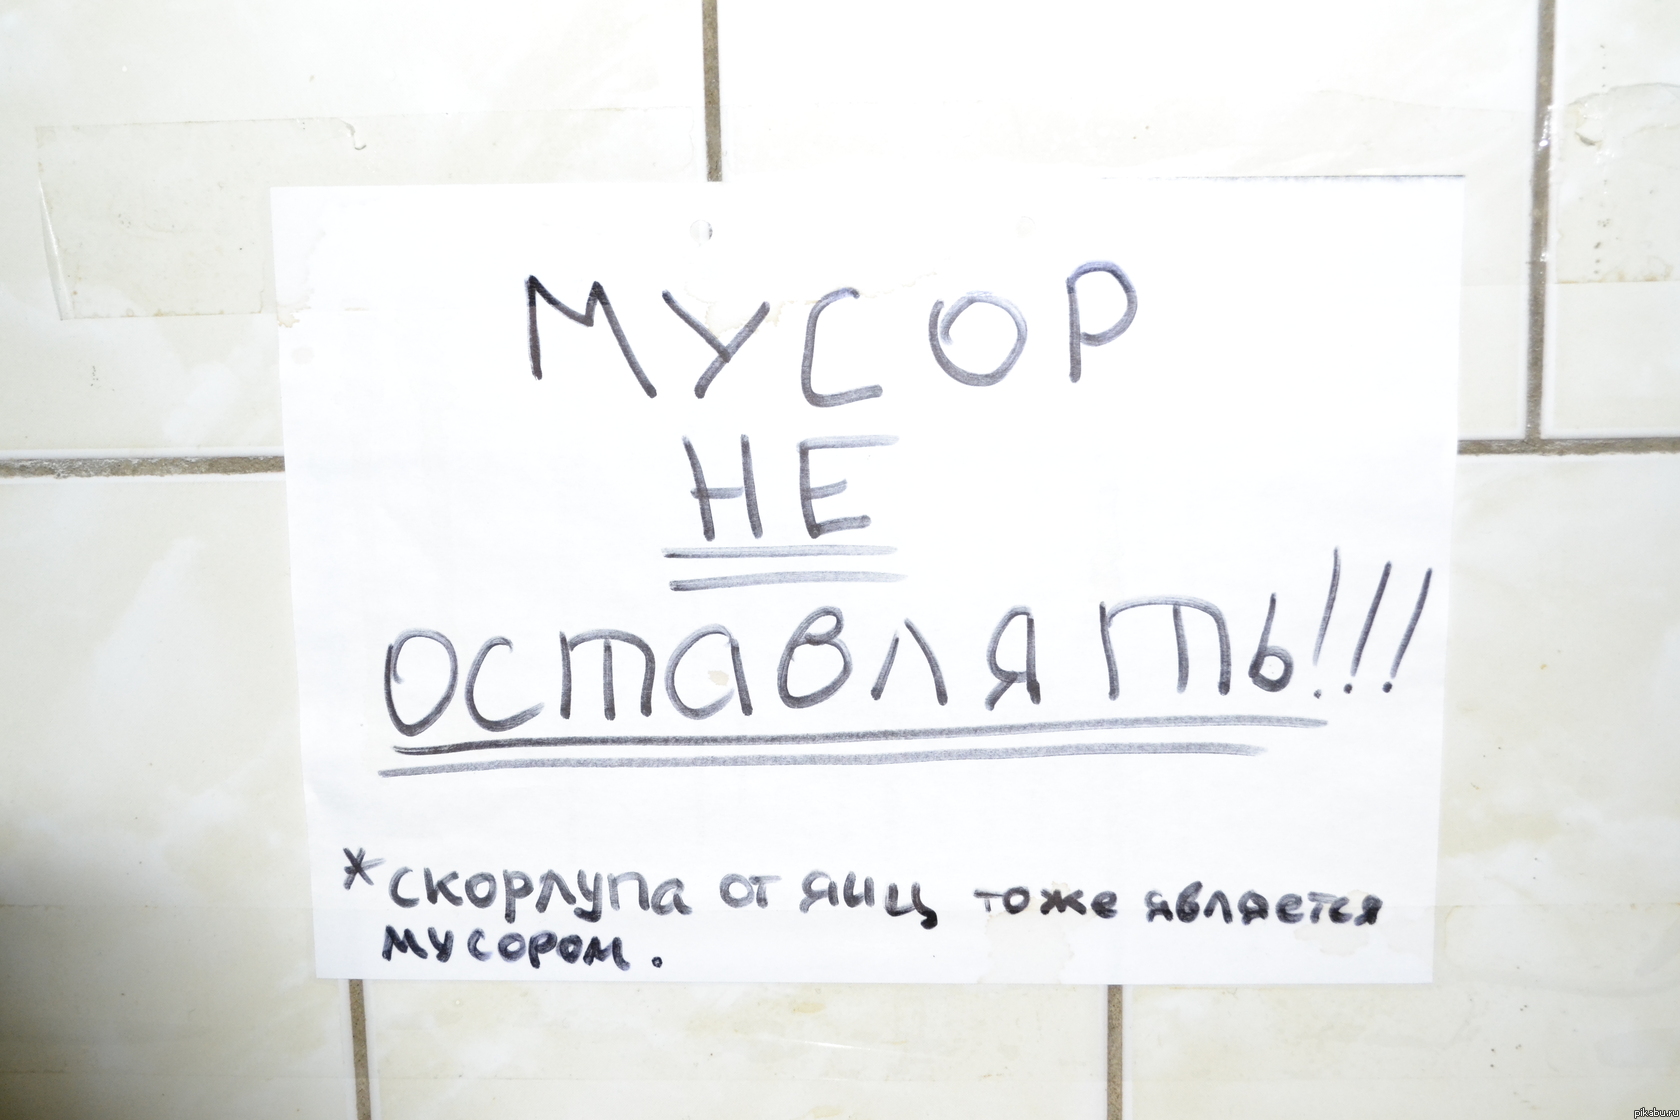 МУСОР
НЕ
ОСТАВЛЯТЬ!!!
*скорлупа от яиц тоже является
мусором.
pikabu.ru